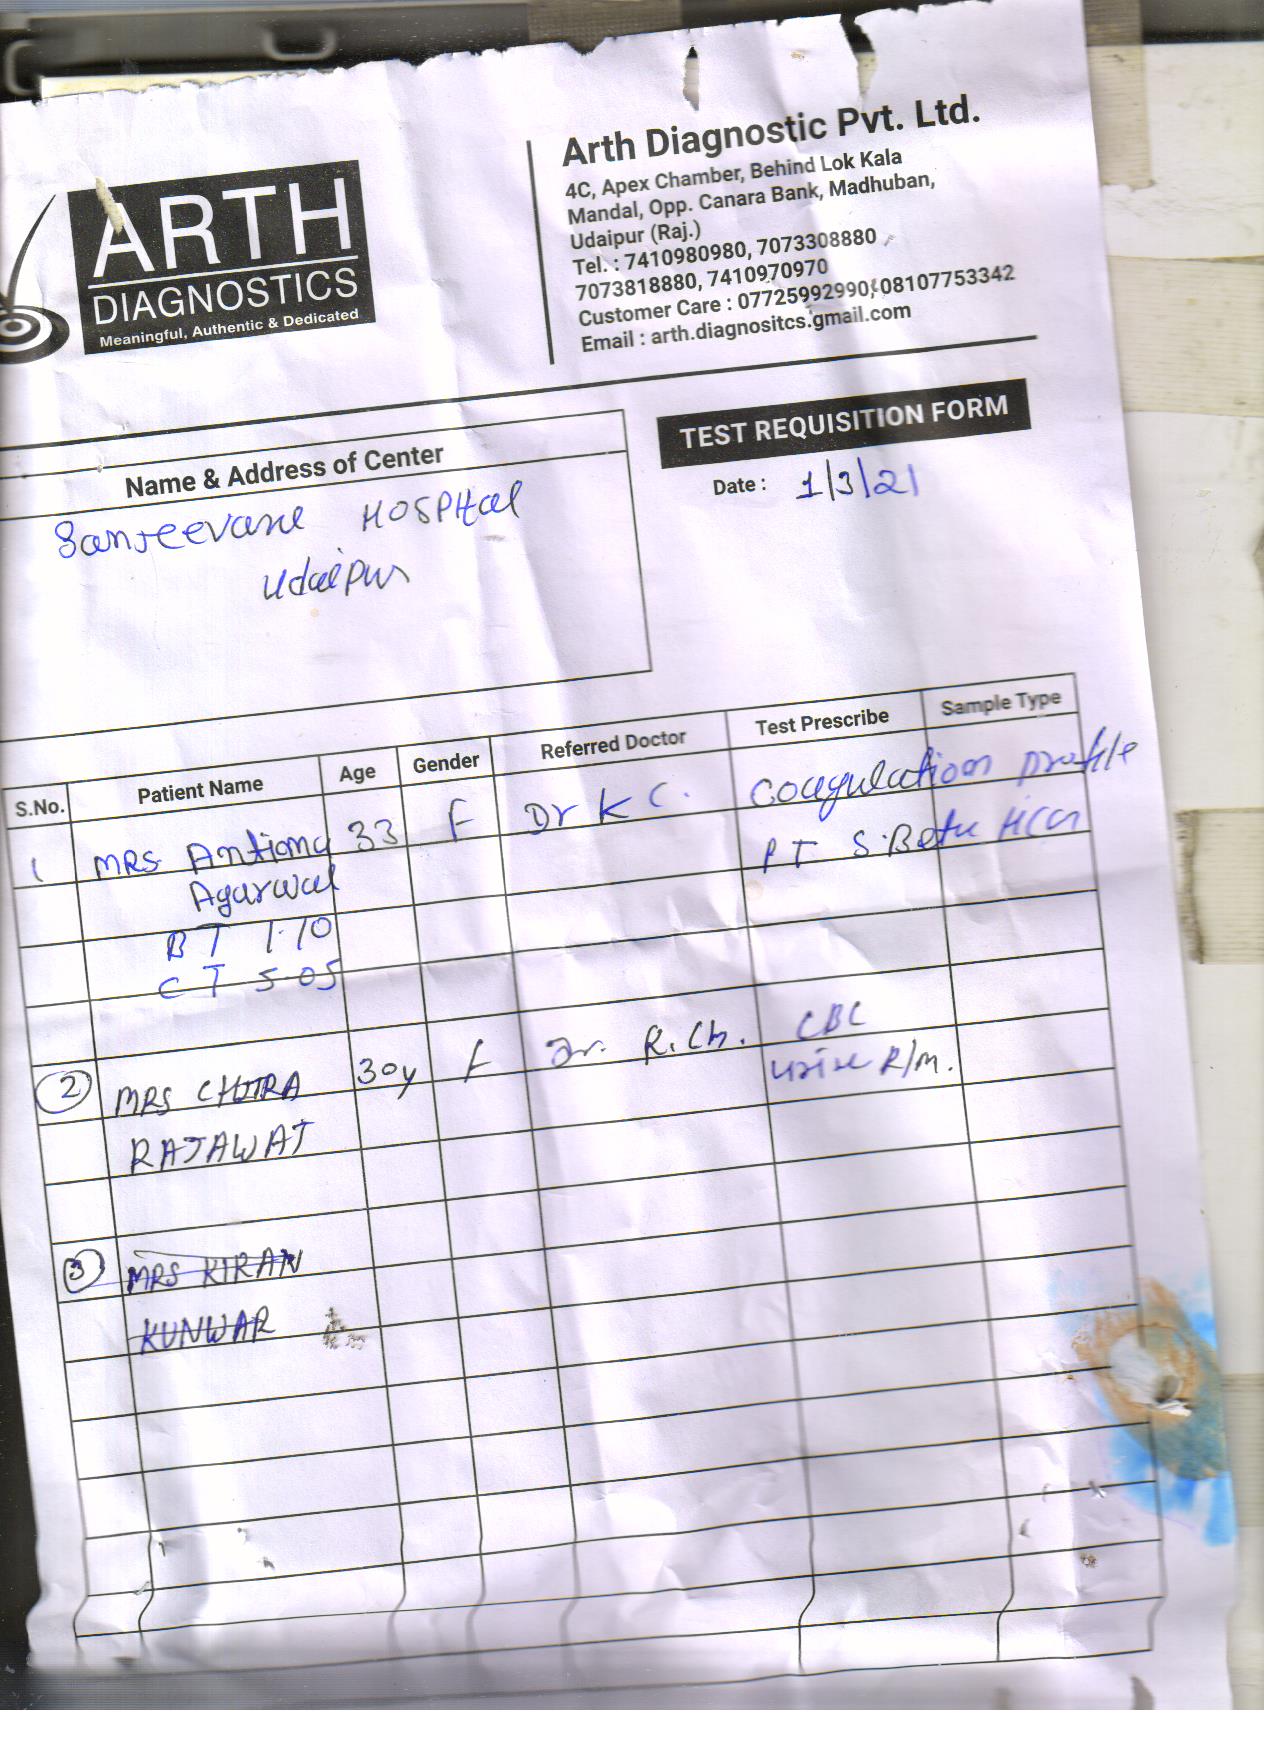 ARTH
DIAGNOSTICS
Meaningful, Authentic & Dedicated
Arth Diagnostic Pvt. Ltd.
4C, Apex Chamber, Behind Lok Kala
Mandal, Opp. Canara Bank, Madhuban,
Udaipur (Raj.)
Tel. : 7410980980, 7073308880
7073818880, 7410970970
Customer Care : 07725992990, 08107753342
Email : arth.diagnositcs.gmail.com
TEST REQUISITION FORM
Date : 1/3/21
Name & Address of Center
Sanjeevani HOSPital
Udaipur
S.No. Patient Name Age Gender Referred Doctor Test Prescribe Sample Type
1 MRS 33 F Dr K C. Coagulation profile
Agarwal PT S. Beta HCG
B T 1-10
C T 5-05
2 MRS CHITRA 30y F Dr. R. Ch. CBC
RAJAWAT urine R/M.
3 MRS KIRAN
KUNWAR